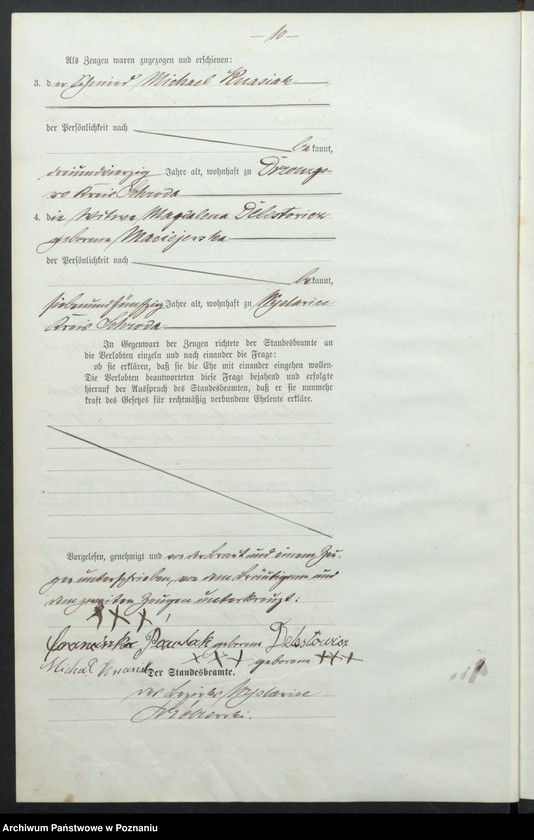 — 10 —
Als Zeugen waren zugezogen und erschienen:
3. der Schmied Michael Knasiak
der Persönlichkeit nach
bekannt,
dreiundvierzig Jahre alt, wohnhaft zu
Kreis Schroda
4. die Witwe Magdalena Delestowicz
geborene Maciejewska
der Persönlichkeit nach
bekannt,
siebenundfünfzig Jahre alt, wohnhaft zu Wyslawice
Kreis Schroda
In Gegenwart der Zeugen richtete der Standesbeamte an
die Verlobten einzeln und nach einander die Frage:
ob sie erklären, daß sie die Ehe mit einander eingehen wollen.
Die Verlobten beantworteten diese Frage bejahend und erfolgte
hierauf der Ausspruch des Standesbeamten, daß er sie nunmehr
kraft des Gesetzes für rechtmäßig verbundene Eheleute erkläre.
Vorgelesen, genehmigt und von der Braut und einem Zeu-
gen unterschrieben, von dem Bräutigam und
dem zweiten Zeugen unterkreuzt:
XXX
Franciszka Pawlak geborene Delestowicz
Michał Knasiak XXX geborene XXX
Der Standesbeamte.
des Bezirks Wyslawice